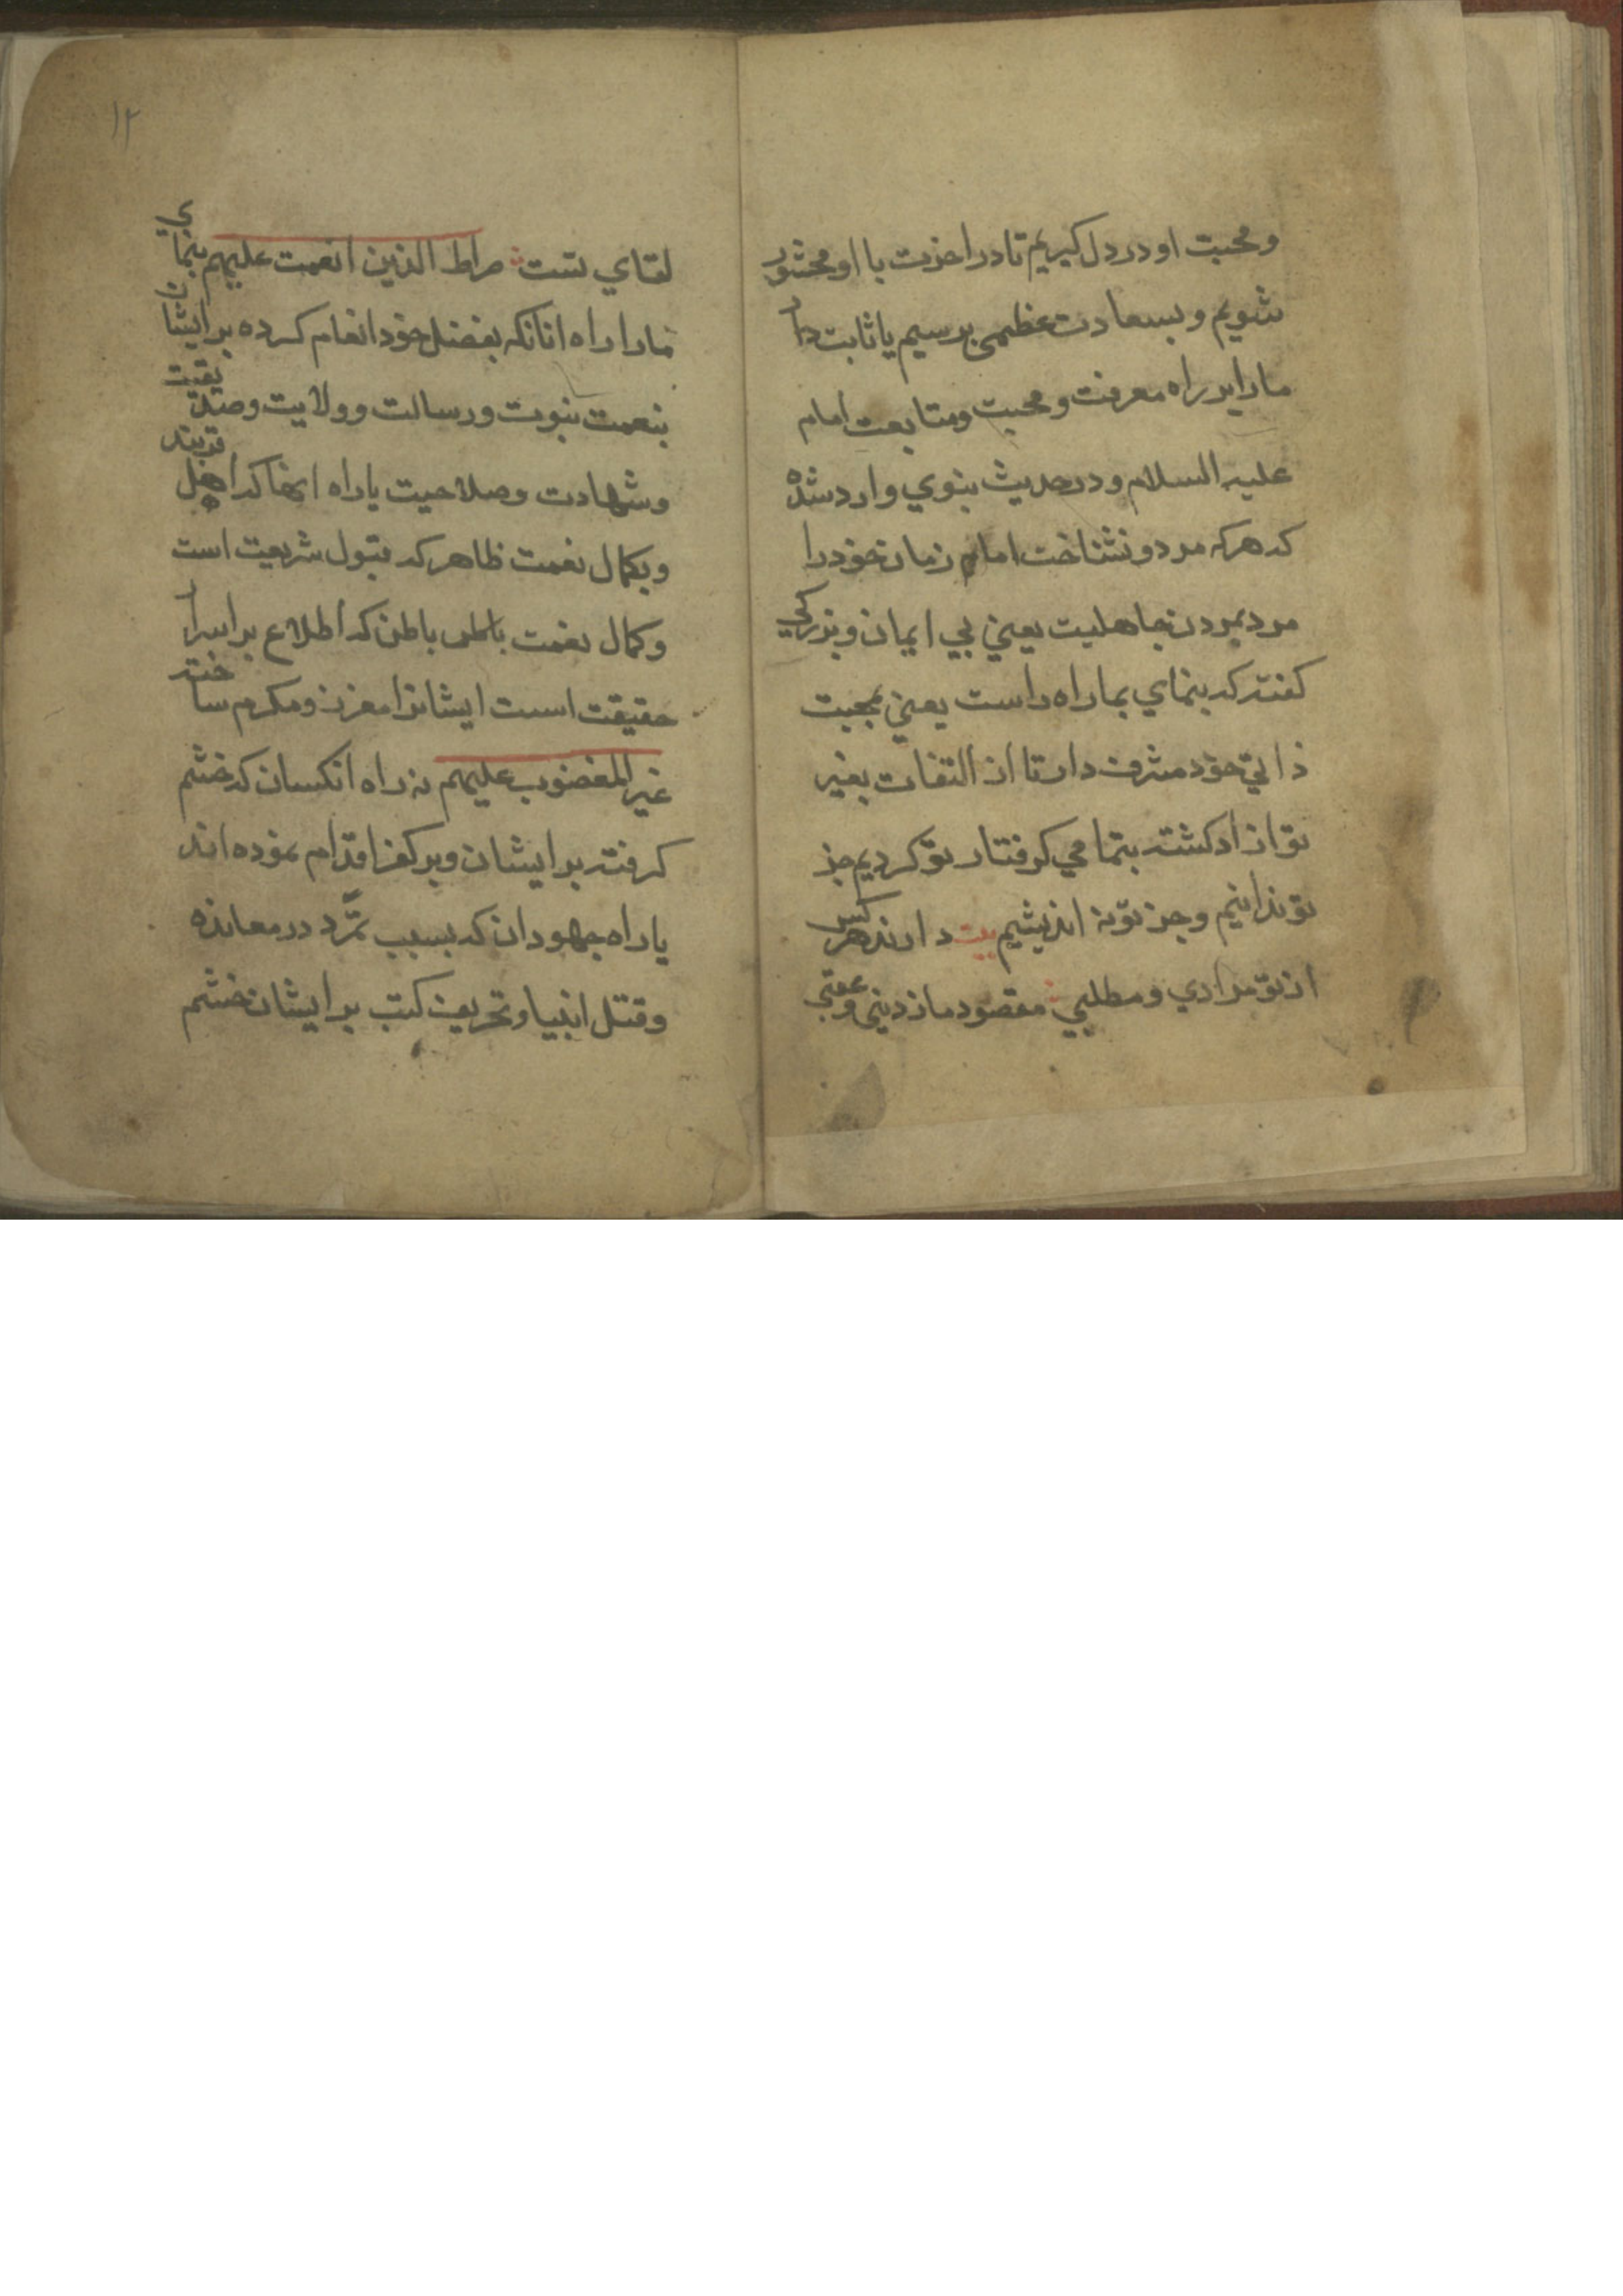 و محبت او در دل کیریم تا در اخرت با او محشور
شویم و بسعادت عظمی برسیم یا ثابت دار
ما را بر راه معرفت و محبت و متابعت امام
علیه السلام و در حدیث نبوي وارد شده
که هرکه مرد و نشناخت امام زمان خود را
مرد بمردن جاهلیت یعني بي ایمان و بزرکي
کفته که بنماي بما راه راست یعني بمحبت
ذاتي خود مشرف دار تا از التفات بغیر
تو ازاد کشته بتمامي کرفتار تو کردیم جز
تو ندانیم و جز تو نه اندیشیم بیت دارند هر کس
از تو مرادي و مطلبي مقصود ما ز دنیي و عقبي
۱۲
لقاي تست صراط الذین انعمت علیهم بنماي
ما را راه انانکه بفضل خود انعام کرده بر ایشان
بنعمت نبوت و رسالت و ولایت و صدیقیت
و شهادت و صلاحیت یا راه انها که اهل قربند
و بکمال نعمت ظاهر که قبول شریعت است
و کمال نعمت باطن که اطلاع بر اسرار
حقیقت است ایشانرا معزز و مکرم ساخته
غیر المغضوب علیهم نه راه انکسان که خشم
کرفته بر ایشان و بر کفر اقدام نموده اند
یا راه جهودان که بسبب تمرّد در معانده
و قتل انبیا و تحریف کتب بر ایشان خشم